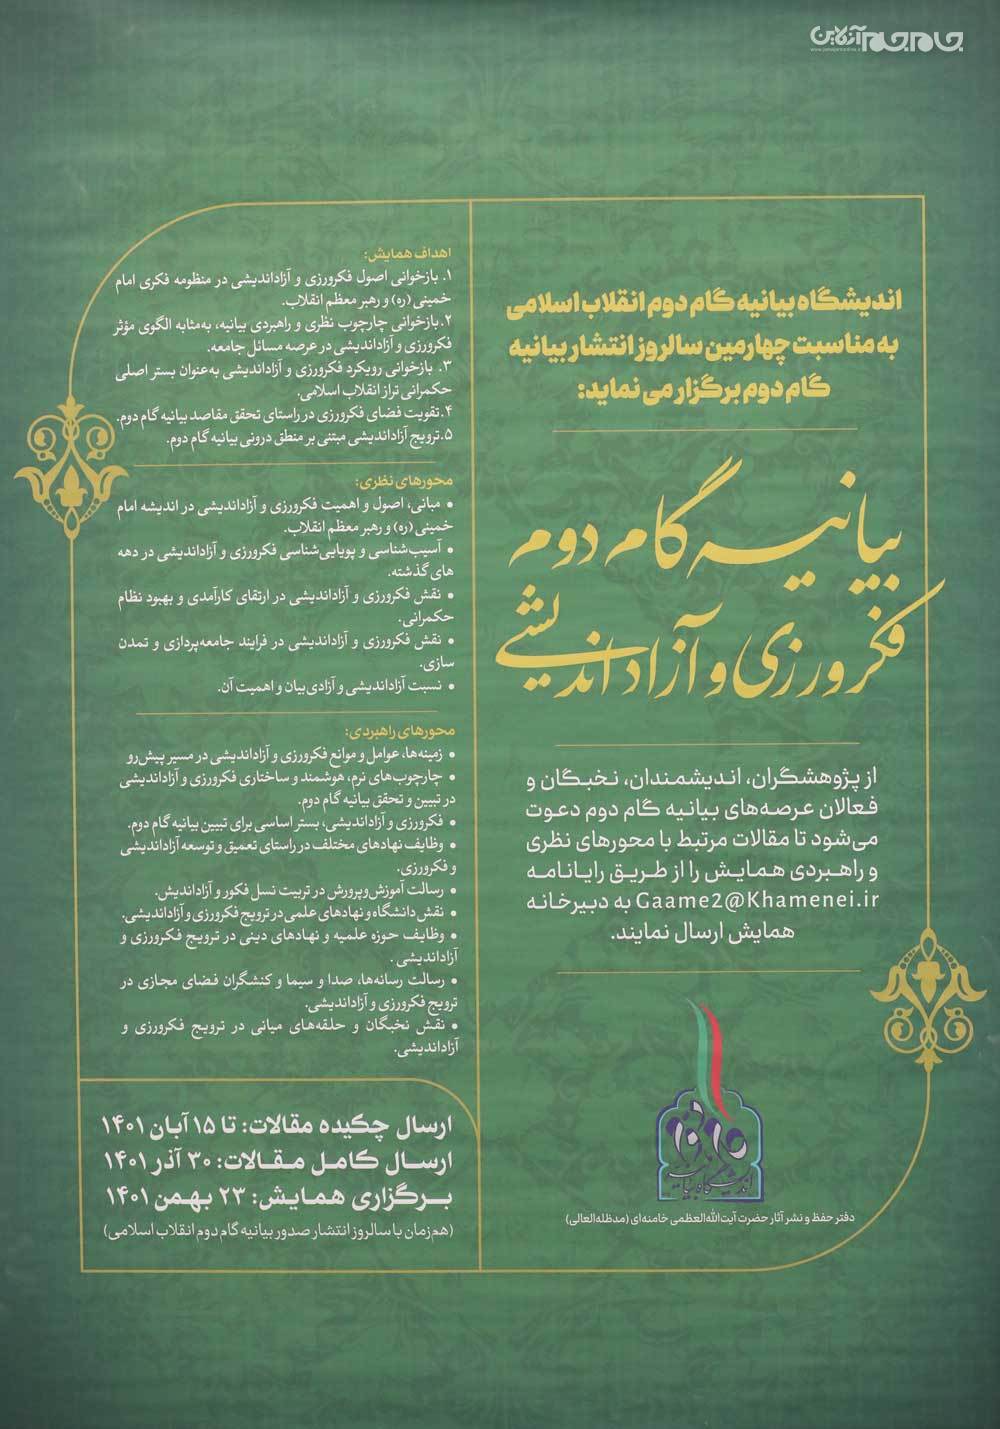 جام‌جم آنلاین
اندیشگاه بیانیه گام دوم انقلاب اسلامی
به مناسبت چهارمین سالروز انتشار بیانیه
گام دوم برگزار می نماید:
بیانیه گام دوم
فکرورزی و آزاداندیشی
از پژوهشگران، اندیشمندان، نخبگان و
فعالان عرصه‌های بیانیه گام دوم دعوت
می‌شود تا مقالات مرتبط با محورهای نظری
و راهبردی همایش را از طریق رایانامه
Gaame2@Khamenei.ir به دبیرخانه
همایش ارسال نمایند.
اندیشگاه بیانیه
دفتر حفظ و نشر آثار حضرت آیت‌الله‌العظمی خامنه‌ای (مدظله‌العالی)
اهداف همایش:
۱. بازخوانی اصول فکرورزی و آزاداندیشی در منظومه فکری امام
خمینی (ره) و رهبر معظم انقلاب.
۲. بازخوانی چارچوب نظری و راهبردی بیانیه، به‌مثابه الگوی مؤثر
فکرورزی و آزاداندیشی در عرصه مسائل جامعه.
۳. بازخوانی رویکرد فکرورزی و آزاداندیشی به‌عنوان بستر اصلی
حکمرانی تراز انقلاب اسلامی.
۴. تقویت فضای فکرورزی در راستای تحقق مقاصد بیانیه گام دوم.
۵. ترویج آزاداندیشی مبتنی بر منطق درونی بیانیه گام دوم.
محورهای نظری:
• مبانی، اصول و اهمیت فکرورزی و آزاداندیشی در اندیشه امام
خمینی (ره) و رهبر معظم انقلاب.
• آسیب‌شناسی و پویایی‌شناسی فکرورزی و آزاداندیشی در دهه
های گذشته.
• نقش فکرورزی و آزاداندیشی در ارتقای کارآمدی و بهبود نظام
حکمرانی.
• نقش فکرورزی و آزاداندیشی در فرایند جامعه‌پردازی و تمدن
سازی.
• نسبت آزاداندیشی و آزادی‌بیان و اهمیت آن.
محورهای راهبردی:
• زمینه‌ها، عوامل و موانع فکرورزی و آزاداندیشی در مسیر پیش‌رو
• چارچوب‌های نرم، هوشمند و ساختاری فکرورزی و آزاداندیشی
در تبیین و تحقق بیانیه گام دوم.
• فکرورزی و آزاداندیشی، بستر اساسی برای تبیین بیانیه گام دوم.
• وظایف نهادهای مختلف در راستای تعمیق و توسعه آزاداندیشی
و فکرورزی.
• رسالت آموزش‌وپرورش در تربیت نسل فکور و آزاداندیش.
• نقش دانشگاه و نهادهای علمی در ترویج فکرورزی و آزاداندیشی.
• وظایف حوزه علمیه و نهادهای دینی در ترویج فکرورزی و
آزاداندیشی .
• رسالت رسانه‌ها، صدا و سیما و کنشگران فضای مجازی در
ترویج فکرورزی و آزاداندیشی.
• نقش نخبگان و حلقه‌های میانی در ترویج فکرورزی و
آزاداندیشی.
ارسال چکیده مقالات: تا ۱۵ آبان ۱۴۰۱
ارسال کامل مقالات: ۳۰ آذر ۱۴۰۱
برگزاری همایش: ۲۳ بهمن ۱۴۰۱
(هم‌زمان با سالروز انتشار صدور بیانیه گام دوم انقلاب اسلامی)